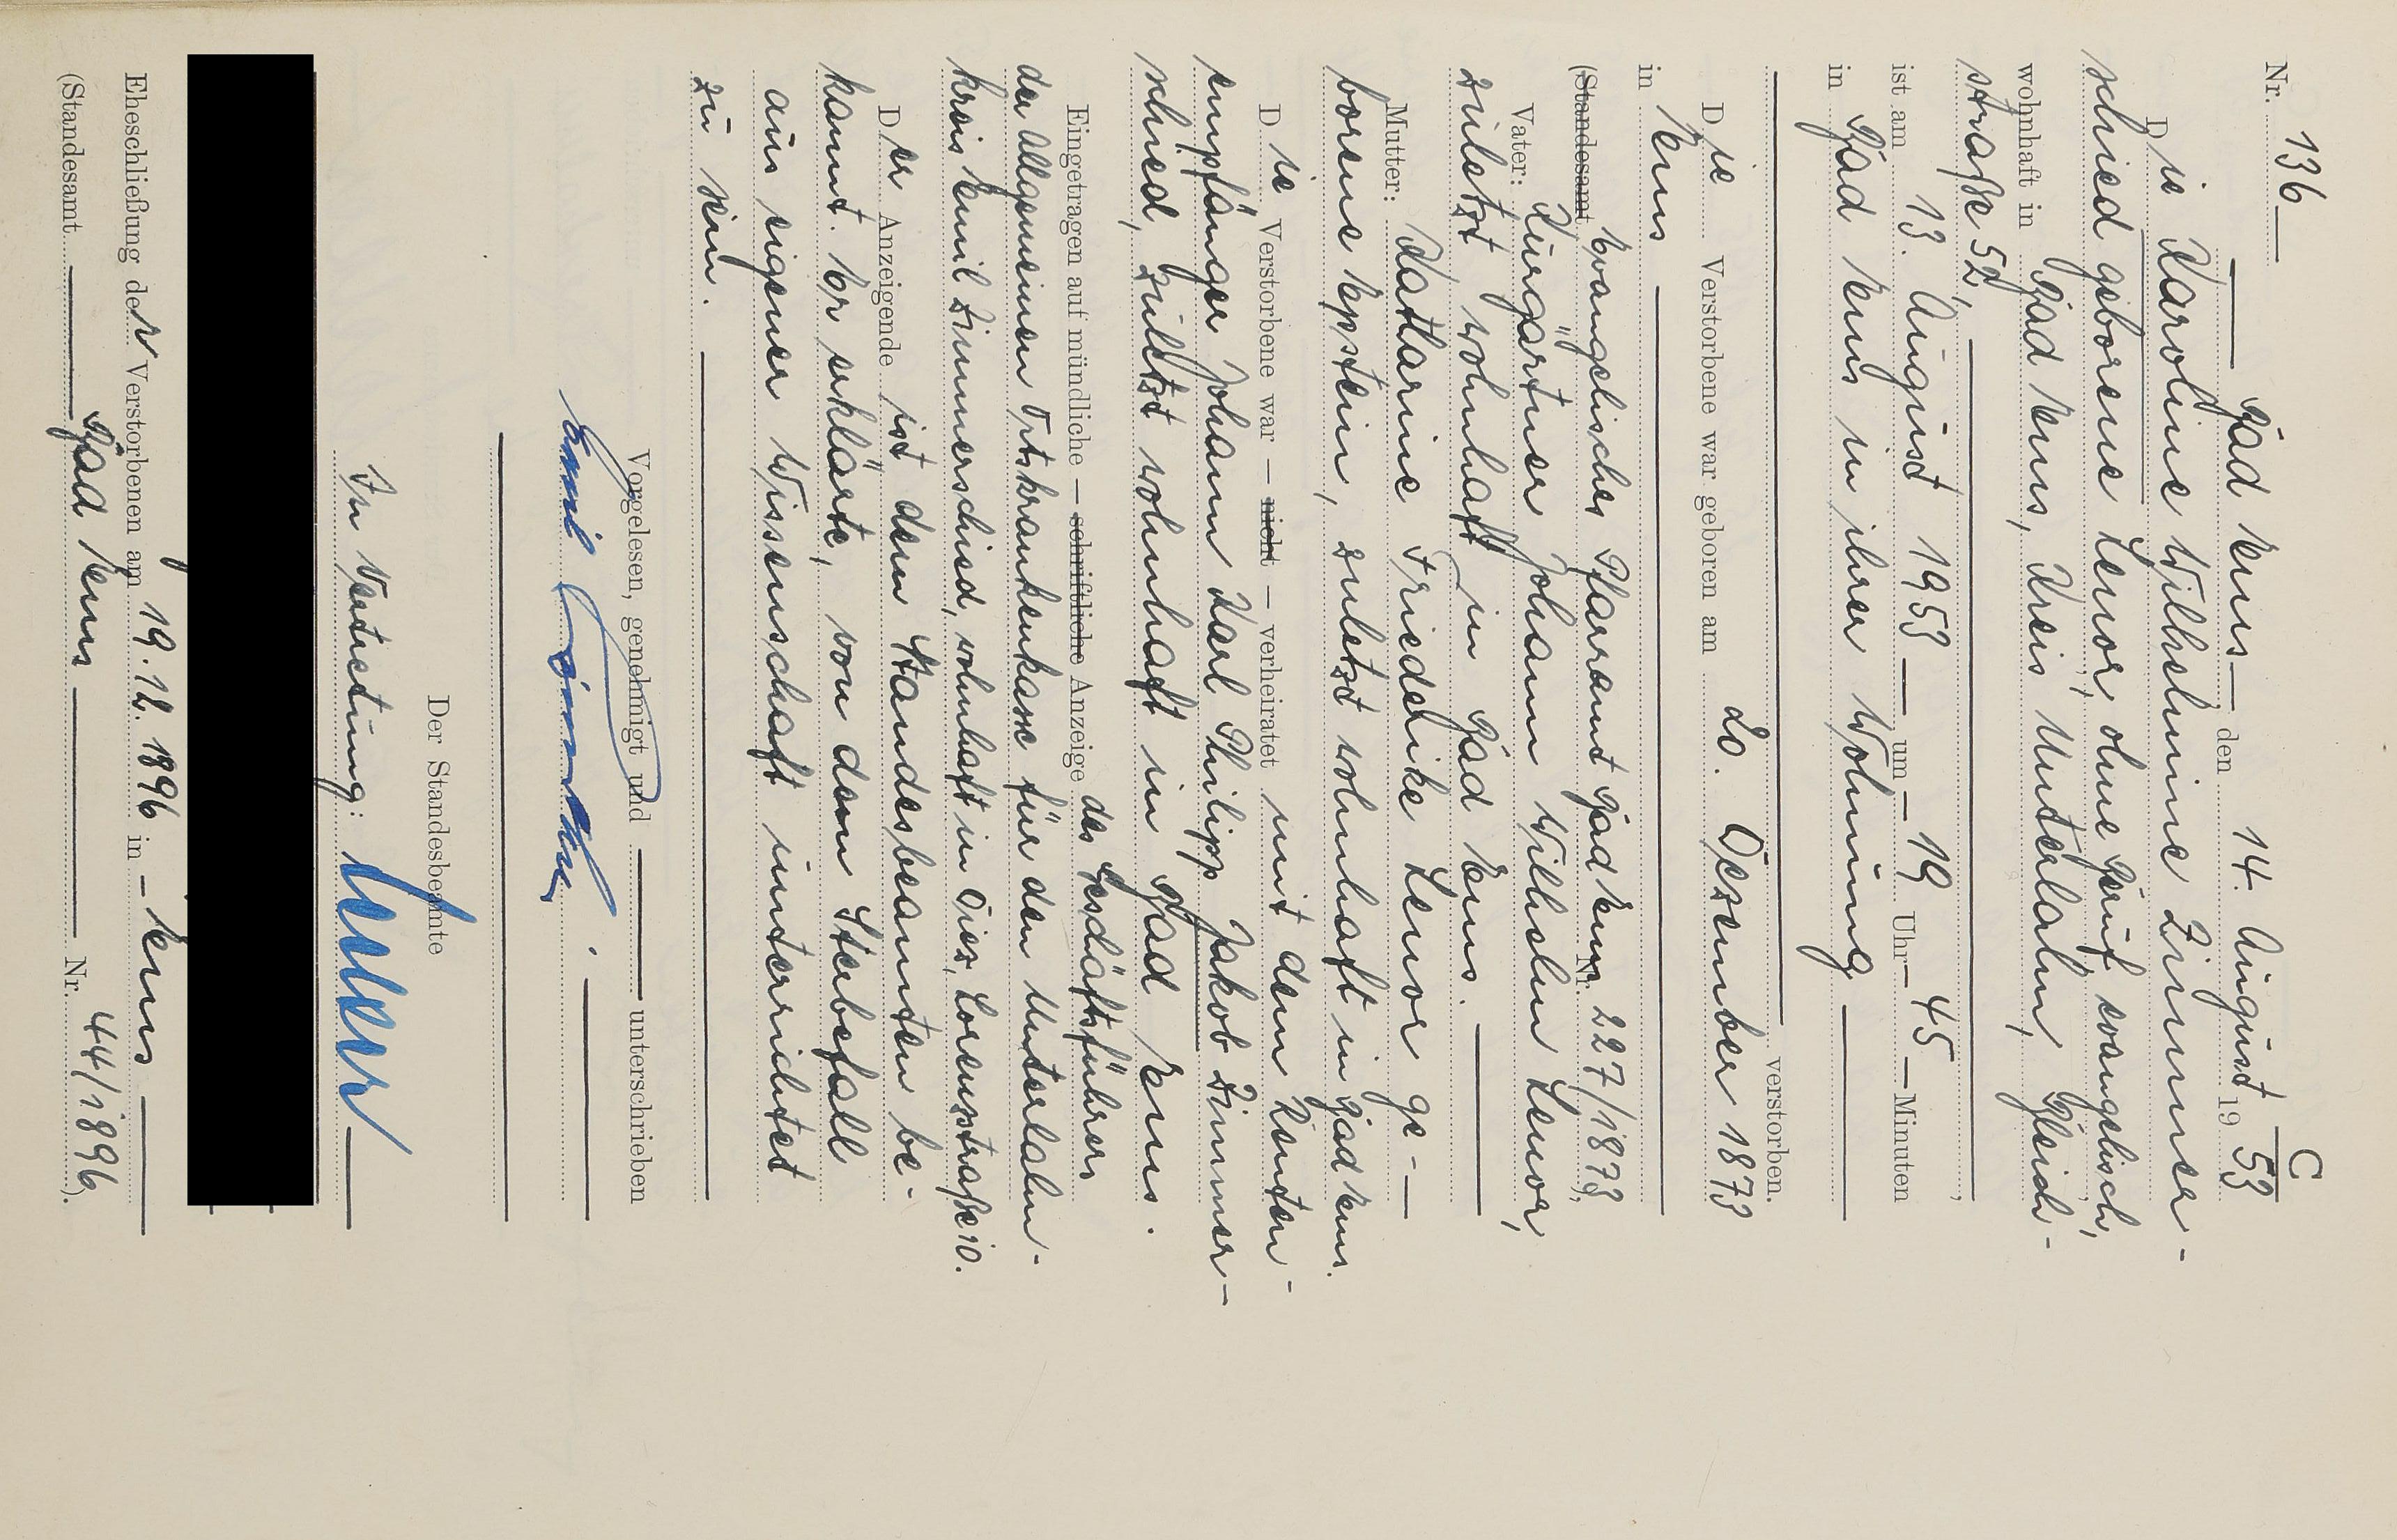 C
Nr. 136
Bad Ems den 14. August 1953
Die Karoline Wilhelmine Zimmer-
schied geborene Lenor, ohne Beruf, evangelisch,
wohnhaft in Bad Ems, Kreis Unterlahn, Bleich-
straße 52,
ist am 13. August 1953 um 19 Uhr 45 Minuten
in Bad Ems in ihrer Wohnung
verstorben.
Die Verstorbene war geboren am 20. Dezember 1873
in Ems
(Standesamt Evangelisches Pfarramt Bad Ems Nr. 227/1873).
Vater: Kurgärtner Johann Wilhelm Lenor,
zuletzt wohnhaft in Bad Ems.
Mutter: Katharine Friederike Lenor ge-
borene Epstein, zuletzt wohnhaft in Bad Ems.
Die Verstorbene war — nicht — verheiratet mit dem Renten-
empfänger Johann Karl Philipp Jakob Zimmer-
schied, zuletzt wohnhaft in Bad Ems.
Eingetragen auf mündliche — schriftliche Anzeige des Geschäftsführers
der Allgemeinen Ortskrankenkasse für den Unterlahn-
kreis Emil Zimmerschied, wohnhaft in Diez, Lorenzstraße 10.
Der Anzeigende ist dem Standesbeamten be-
kannt. Er erklärte, von dem Sterbefall
aus eigener Wissenschaft unterrichtet
zu sein.
Vorgelesen, genehmigt und unterschrieben
Emil
Der Standesbeamte
In Vertretung:
Eheschließung der Verstorbenen am 19.12.1896 in Ems
(Standesamt Bad Ems Nr. 44/1896).